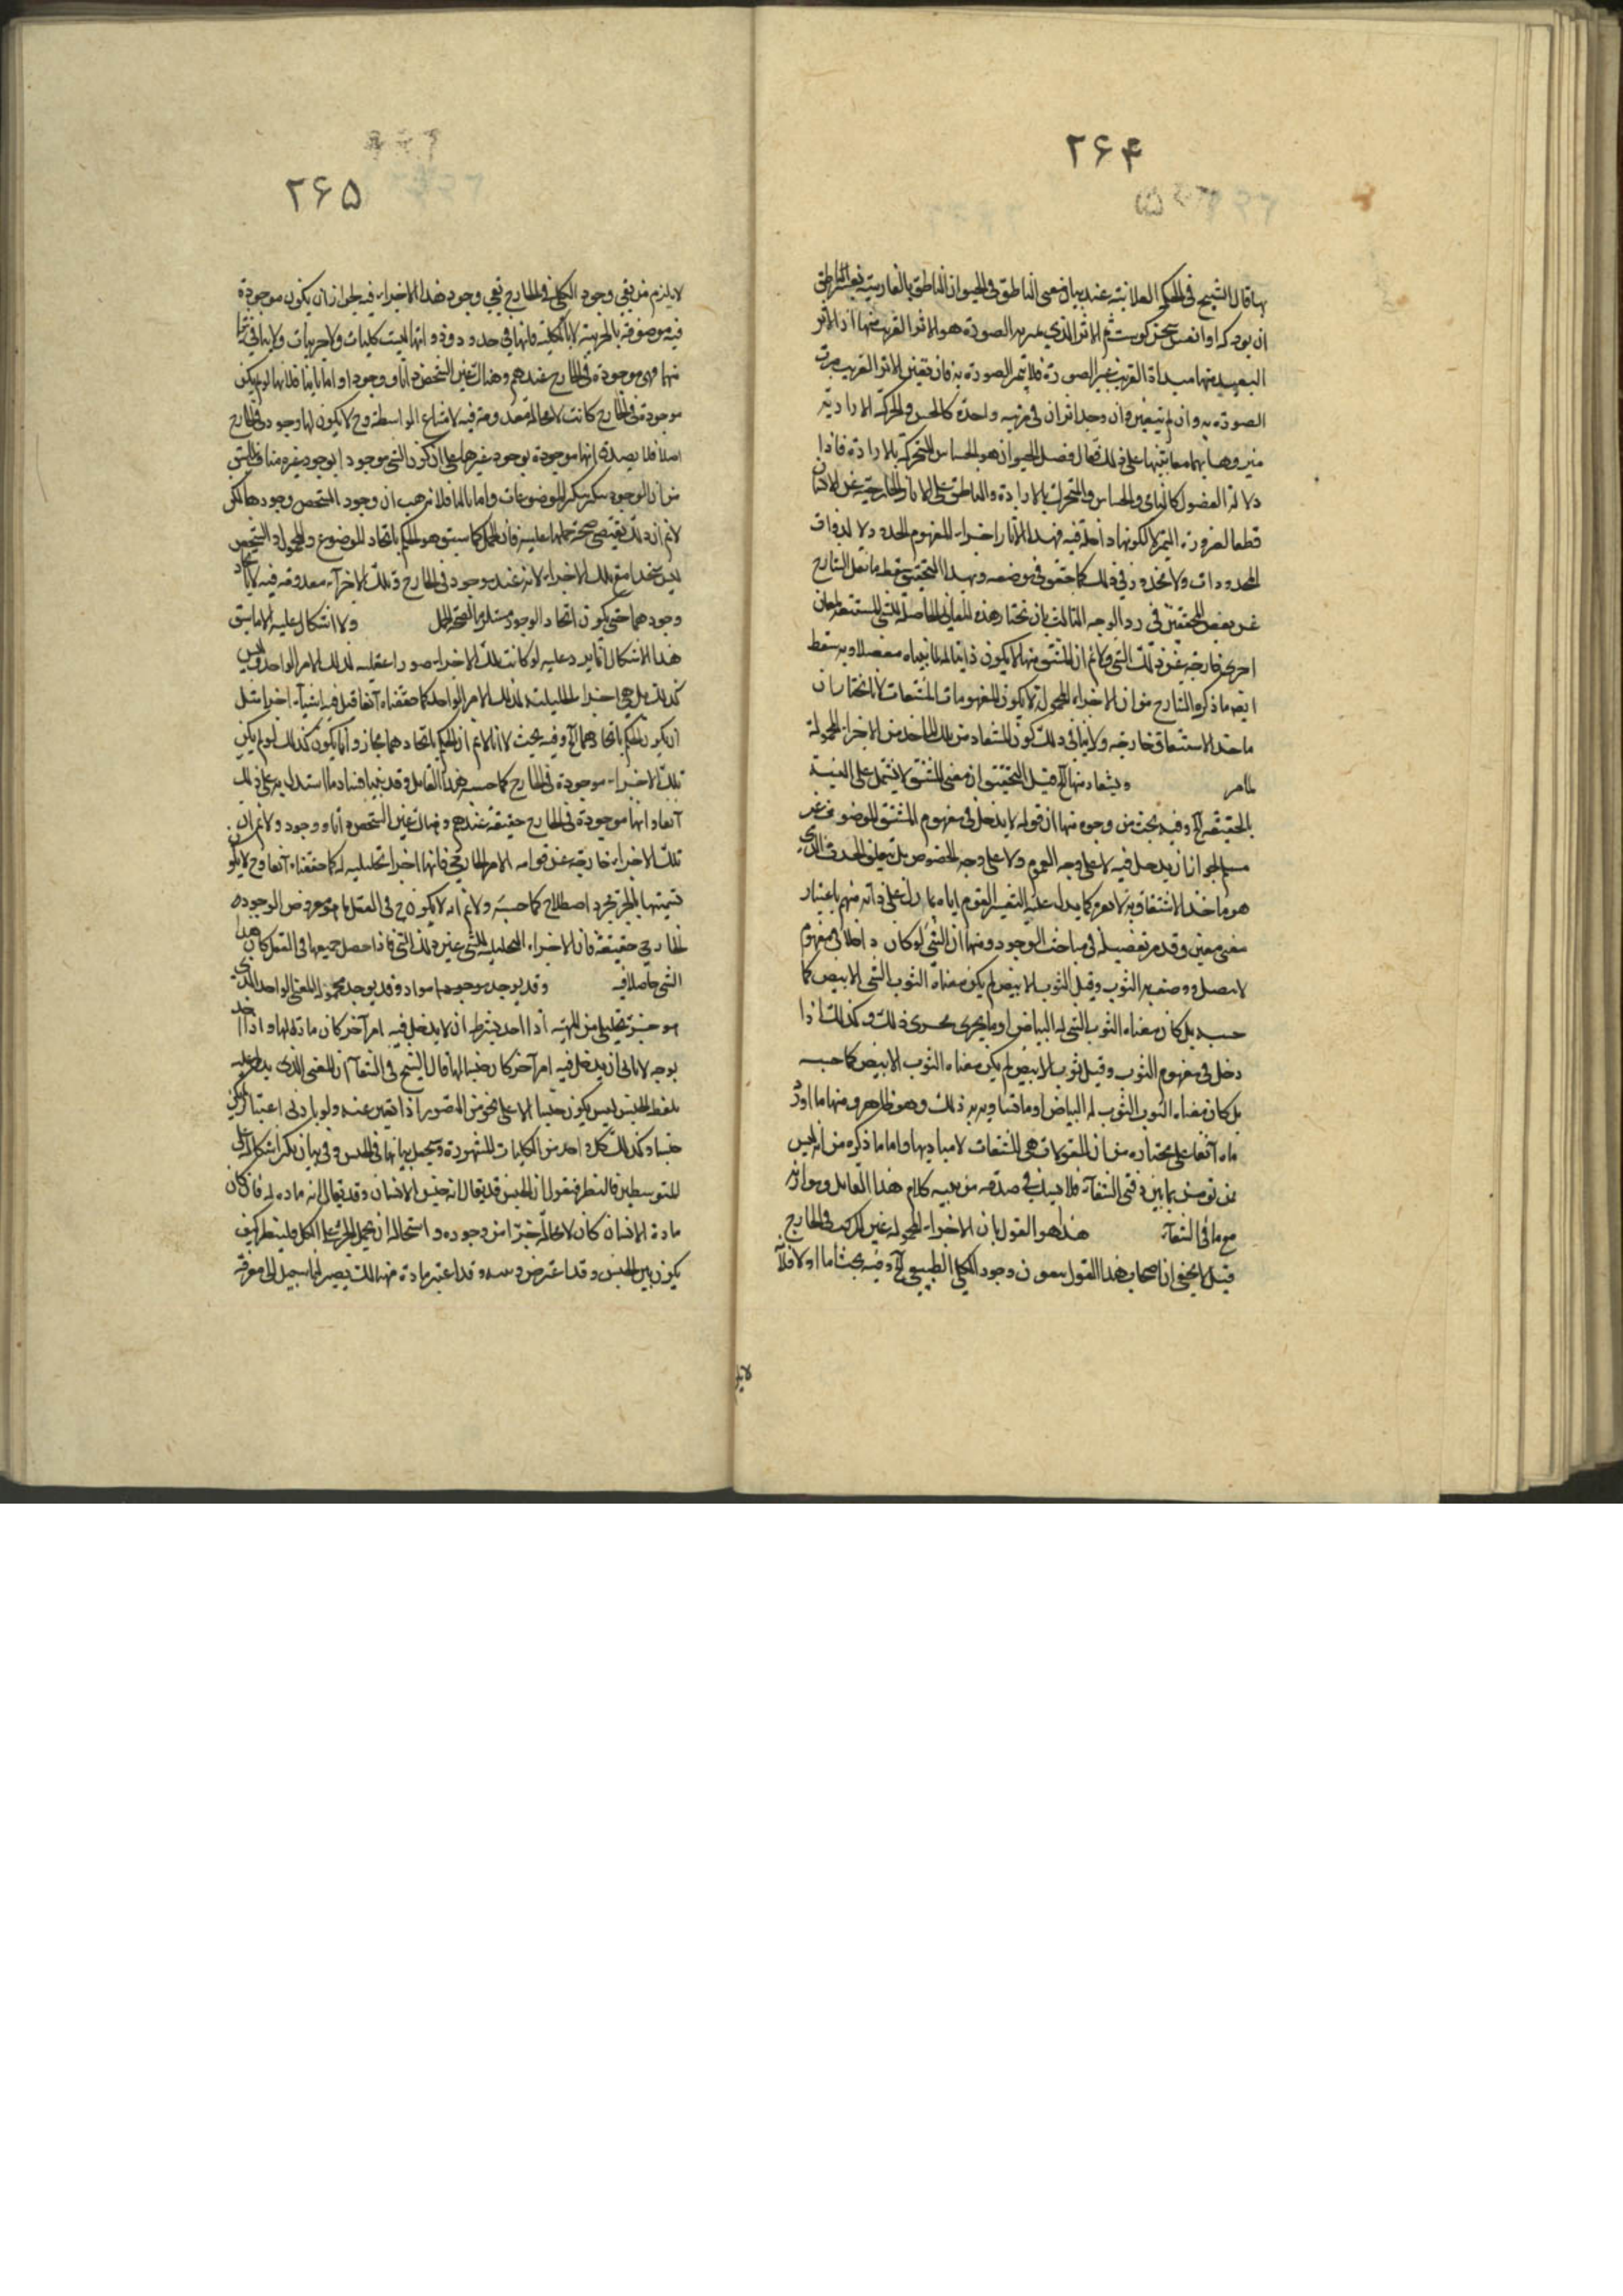 ۲۶۴
بها قال الشيخ فى الحكمة العلائية عند بيان معنى الناطق فى الحيوان الناطق بالفارسية
ان بود كه او را نفس سخن كويست ثم الاثر الذي يتميز به الصورة هو الاثر القريب منها اذ الاثر
البعيد منها مبدأه القريب غير الصورة فلا يتميز الصورة به فان تعين الاثر القريب ميزت
الصورة به وان لم يتعين وان وجد اثران فى مرتبة واحدة كالحس والحركة الارادية
ميز وهما بهما معا تنبيها على ذلك يقال فصل الحيوان هو الحساس المتحرك بالارادة فاذا
دلالة الفصول كالنامى والحساس والمتحرك بالارادة والناطق على الاثار الخارجية عن
قطعا لضرورة التميز لا لكونها داخلة فيه فهذا الاثار اجزاء لمفهوم الحدود لا لذوات
المحدودات ولا محذور فى ذلك كما حقق فى موضعه وبهذا التحقيق سقط ما نقل الشارح
عن بعض المحققين فى رد الوجه الثالث بان نختار هذه المعانى الحاصلة للشى المستتبعة لمعان
اخرى خارجة عن ذلك الشى ولا نم ان المشتق منها لا يكون ذاتيا له لما بيناه مفصلا وبه سقط
ايضا ما ذكره الشارح من ان الاجزاء المحمولة لا يكون المفهومات المشتقات لانا نختار ان
ماخذ الاشتقاق خارجة ولا ينافى ذلك كون المستفاد من تلك المآخذ من الاجزاء المحمولة
لما مر ويستفاد منها آه قيل التحقيق ان معنى المشتق لا يشتمل على النسبة
بالحقيقة آه وفيه بحث من وجوه منها ان قوله لا يدخل فى مفهوم المشتق الموضوف غير
مسلم لجواز ان يدخل فيه لا على وجه العموم ولا على وجه الخصوص بل
هو ماخذ الاشتقاق كما يدل عليه تفسير القوم اياه بما دل على ذات مبهم باعتبار
معنى معين وقد مر تفصيله فى مباحث الوجود ومنها ان الشى لو كان داخلا فى مفهوم
الابيض وصف به الثوب وقيل الثوب الابيض لم يكن معناه الثوب الشى الابيض كما
حسبه بل كان معناه الثوب الشى له البياض او ما يجرى مجرى ذلك وكذلك اذا
دخل فى مفهوم الثوب وقيل ثوب الابيض لم يكن معناه الثوب الابيض كما حسبه
بل كان معناه الثوب الثوب له البياض او ما يساويه ذلك وهو ظاهر ومنها ما اورد
ناه آنفا على مختاره من ان المقولات هى المشتقات لا مباديها واما ما ذكره من انه ليس
من نومش بما بين دفتى الشفاء فلا شك فى صدقه
مع ما فى الشفاء هذا هو القول بان الاجزاء المحمولة غير المركب فى الخارج
قيل لا يخفى ان اصحاب هذا القول ينفون وجود الكلى الطبيعى آه وفيه بحث اما اولا فلانه
۲۶۵
لا يلزم من نفى وجود الكلى فى الخارج نفى وجود هذا الاجزاء فيه لجواز ان يكون موجودة
فيه موصوفة بالجزئية لا بالكلية فانها فى حدود ذواتها ليست كليات ولا جزئيات ولا ينافى شيئا
منها فهى موجودة فى الخارج عندهم وهناك عين الشخص ذاتا ووجودا واما ثانيا فلانها لو لم يكن
موجودة فى الخارج كانت لا محالة معدومة فيه لامتناع الواسطة وح لا يكون لها وجود فى الخارج
اصلا فلا يصدق انها موجودة بوجود غيرها على ان كون الشى موجودا بوجود غيره مناف لما سبق
من ان الوجود يتكثر بتكثر الموضوعات واما ثالثا فلانه هب ان وجود الشخص وجودها لكن
لا نم ان ذلك يقتضى صحة حملها عليه فان الحمل كما سبق هو الحكم باتحاد الموضوع والمحمول والشخص
ليس متحدا مع تلك الاجزاء لانه عنده موجود فى الخارج وتلك الاجزاء معدومة فيه
وجودهما حتى يكون اتحاد الوجود مستلزم لصحة الحمل ولا اشكال عليه الا ما سبق
هذا الاشكال انما يرد عليه لو كانت تلك الاجزاء صورا عقلية لذلك الامر الواحد وليس
كذلك بل هى اجزاء تحليلية لذلك الامر الواحد كما حققناه آنفا قيل فيه اشياء اخر امثل
ان يكون الحكم باتحادهما آه وفيه بحث لانا لا نم ان الحكم باتحادهما مجاز وانما يكون كذلك لو لم يكن
تلك الاجزاء موجودة فى الخارج كما حسبه هذا القائل وقد بينا فساد ما استدل به على ذلك
آنفا وانها موجودة فى الخارج حقيقة عندهم وهناك عين الشخص ذاتا ووجودا ولا نم ان
تلك الاجزاء خارجة عن قوام الامر الخارجى فانها اجزاء تحليلية له كما حققناه آنفا وح لا يكون
تسميتها بالجزء مجرد اصطلاح كما حسبه ولا نم انه لا يكون ح فى العقل ما هو معروض الوجود
الخارجى حقيقة فان الاجزاء التحليلية للشى عين ذلك الشى فاذا حصل جميعها فى العقل كان هذا
الشى حاصلا فيه وقد يوجد مواد وقد يوجد محمولة المعنى الواحد الذى
هو جزء تحليلى من المهية اذا اخذ بشرط ان لا يدخل فيه امر آخر كان مادة لها واذا اخذ
بوجه لا يابى ان يدخل فيه امر آخر كان جنسا لها قال الشيخ فى الشفاء ان المعنى الذى يدل عليه
بلفظ الجنس ليس يكون جنسا الا على نحو من التصور اذا تغير عنه ولو بادنى اعتبار لم يكن
جنسا وكذلك كل واحد من الكليات المشهورة وسنجعل بياننا فى الجنس وفى بيان اشكال على
المتوسطين فى النظر فنقول ان الجسم قد يقال انه جنس الانسان وقد يقال انه مادة له فان كان
مادة الانسان كان لا محالة جزءا من وجوده واستحال ان يحمل الجزء على الكل فلينظر كيف
يكون بين الجسم وقد اعتبر جنسا وقد اعتبر مادة فهنالك يصير لنا سبيل الى معرفة